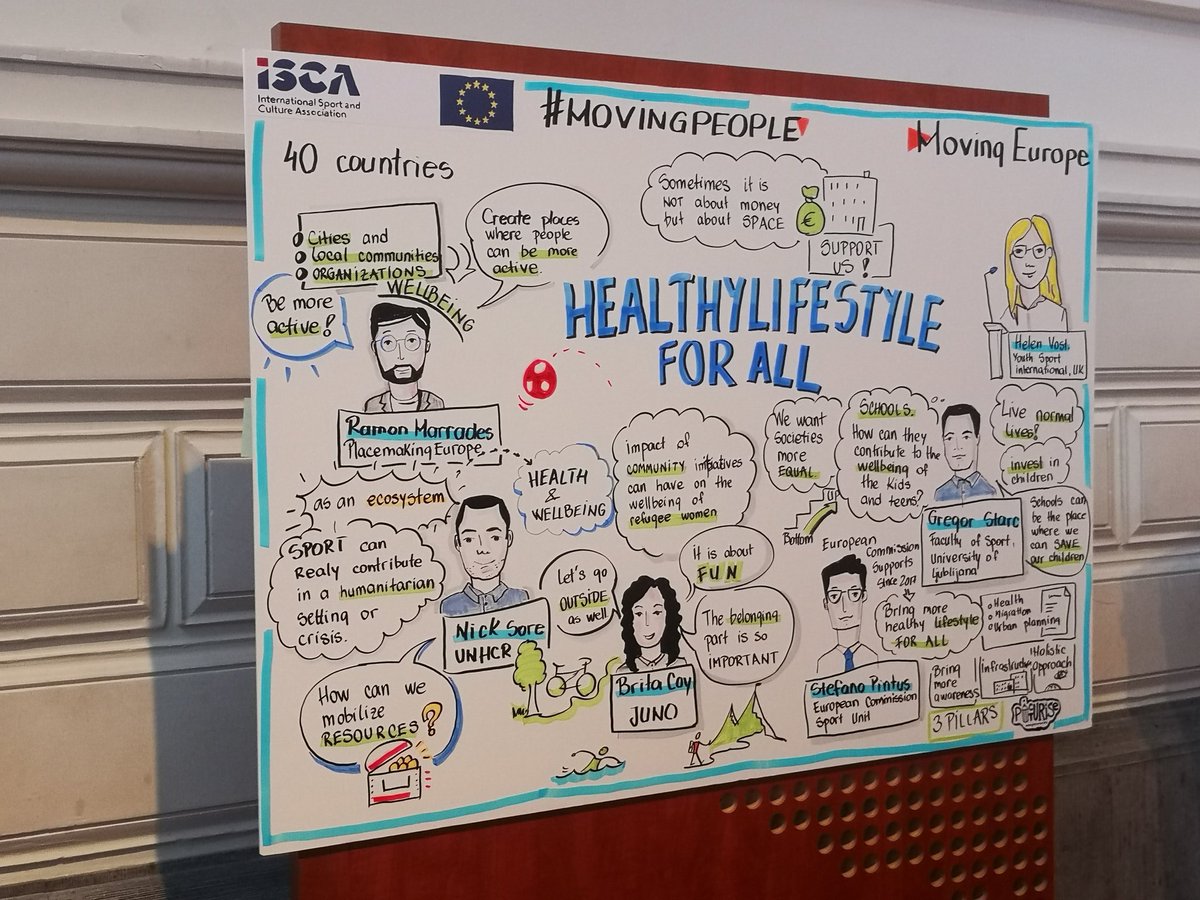 ISCA
International Sport and
Culture Association
#MOVINGPEOPLE
Moving Europe
40 countries
Cities and
local communities
ORGANIZATIONS
WELLBEING
Create places
where people
can be more
active.
Sometimes it is
NOT about money
but about SPACE
€
SUPPORT
US!
Be more
active!
HEALTHYLIFESTYLE
FOR ALL
Helen Vost,
Youth Sport
international, UK
Ramon Marrades
Placemaking Europe
HEALTH
&
WELLBEING
Impact of
COMMUNITY initiatives
can have on the
wellbeing of
refugee women
We want
societies
more
EQUAL.
UP
Bottom
SCHOOLS.
How can they
contribute to the
wellbeing of
the kids
and teens?
Live normal
lives!
invest in
children
Gregor Starc
Faculty of Sport,
University of
Ljubljana
Schools can
be the place
where we
can SAVE
our children
as an ecosystem
SPORT can
Realy contribute
in a humanitarian
setting or
crisis.
Nick Sore
UNHCR
Let's go
OUTSIDE
as well
It is about
FUN
The belonging
part is so
IMPORTANT
Brita Coy
JUNO
European
Commission
Supports
since 2017
Bring more
healthy lifestyle
FOR ALL
Health
Migration
Urban planning
Stefano Pintus
European Commission
Sport Unit
Bring
more
awareness
Holistic
Approach
3 PILLARS
How can we
mobilize
RESOURCES?